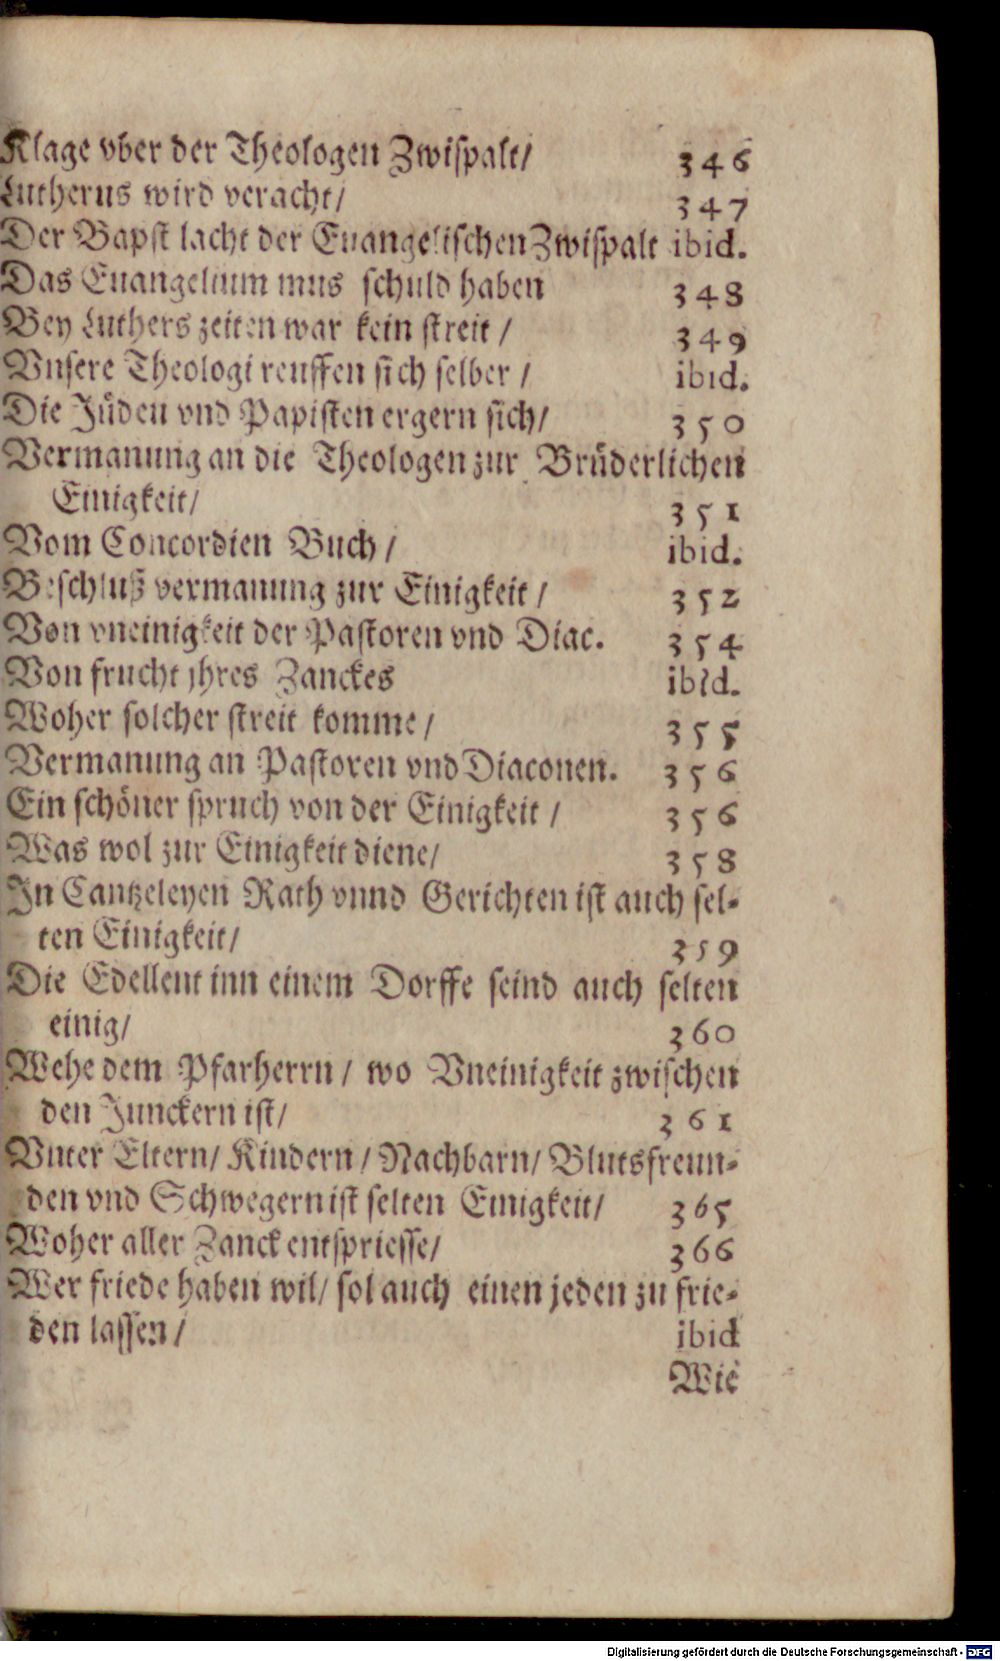 Klage vber der Theologen Zwispalt/ 346
Lutherus wird veracht/ 347
Der Bapst lacht der Euangelischen Zwispalt ibid.
Das Euangelium mus schuld haben 348
Bey Luthers zeiten war kein streit / 349
Vnsere Theologi reuffen sich selber / ibid.
Die Jüden vnd Papisten ergern sich/ 350
Vermanung an die Theologen zur Brüderlichen
Einigkeit/ 351
Vom Concordien Buch / ibid.
Beschluß vermanung zur Einigkeit / 352
Von vneinigkeit der Pastoren vnd Diac. 354
Von frucht jhres Zanckes ibid.
Woher solcher streit komme / 355
Vermanung an Pastoren vnd Diaconen. 356
Ein schöner spruch von der Einigkeit / 356
Was wol zur Einigkeit diene/ 358
In Cantzeleyen Rath vnnd Gerichten ist auch sel-
ten Einigkeit/ 359
Die Edelleut inn einem Dorffe seind auch selten
einig/ 360
Wehe dem Pfarherrn / wo Vneinigkeit zwischen
den Junckern ist/ 361
Vnter Eltern/ Kindern / Nachbarn/ Blutsfreun-
den vnd Schwegern ist selten Einigkeit/ 365
Woher aller Zanck entspriesse/ 366
Wer friede haben wil/ sol auch einen jeden zu frie-
den lassen / ibid
Wie
Digitalisierung gefördert durch die Deutsche Forschungsgemeinschaft - DFG